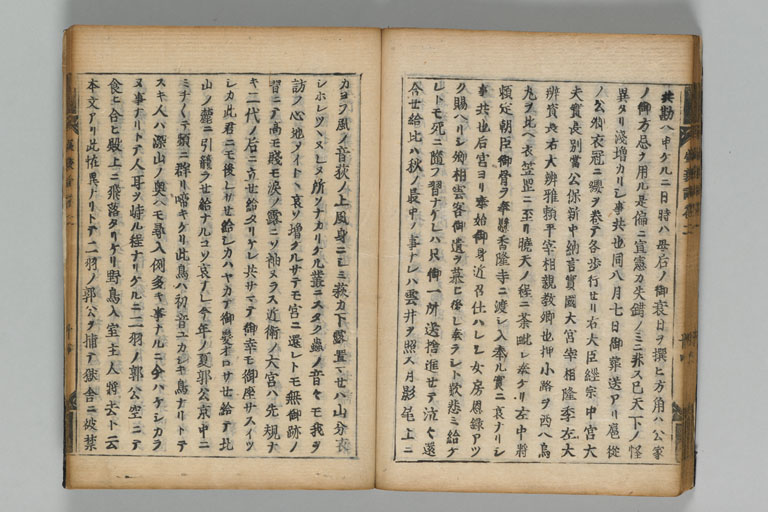 共勘ハ申ケルニ日時ハ母后ノ御衰日ヲ撰ヒ方角ハ公家
ノ御方忌ヲ用ル是偏ニ宣憲カ失錯ノミニ非ス已天下ノ怪
異タリ淺増カリシ事共也同八月七日御葬送アリ扈從
ノ公卿衣冠ニ纓ヲ巻テ各歩行セリ右大臣經宗中宮大
夫實長別當公保新中納言實國大宮宰相隆季左大
辨資長右大辨雅頼平宰相親教卿也押小路ヲ西ヘ烏
丸ヲ北ヘ衣笠罡ニ至リ曉天ノ程ニ荼毗シ奉ケリ左中将
頼定朝臣御骨ヲ奉懸香隆寺ニ渡シ入奉ル實ニ哀ナリシ
事共也后宮ヨリ奉始御身近召仕ハレシ女房恩録アツ
ク賜ハリシ卿相雲客御遺ヲ慕ヒ奉ラシト歎悲ミ給ケ
レトモ死ニ隨フ習ナケレハ只御一所送捨進セテ泣々還
今セ給比ハ秋ノ最中ノ事ナレハ雲井ヲ照ス月影尾上ニ
カヨフ風ノ音荻ノ上風身ニシミ萩カ下露置マセハ山分衣
シホレツヽヌレヌ所ソナカリケル叢ニスタク蟲ノ音々モ我ヲ
訪フ心地メイトヽ哀ソ増クルサテモ宮ニ還レトモ無御跡ノ
習ニテ高モ賤モ涙ノ露ニソ袖ヌラス近衛ノ大宮ハ先規ナ
キ二代ノ后ニ立セ給タリケレ共サマテ御幸モ御座サスイツ
シカ此君ニモ後レサセ給シカハヤカテ御髪オロサセ給テ北
山ノ麓ニ引籠ラセ給ナルコソ哀ナレ今年ノ夏郭公京中ニ
ミチ／＼テ頻ニ群リ啼キケリ此鳥ハ初音ユカシキ鳥ナリトテ
スキ人ハ深山ノ奥ヘモ尋入例多キ事ナルニ今ハケシカラ
ヌ事ナリトテ人耳ヲ峙ル程ナリケルニ二羽ノ郭公空ニテ
食ヒ合ヒ殿上ニ飛落タリケリ野鳥入室主人將去ト云
本文アリ此怪異ナリトテ二羽ノ郭公ヲ捕テ獄舎ニ被禁